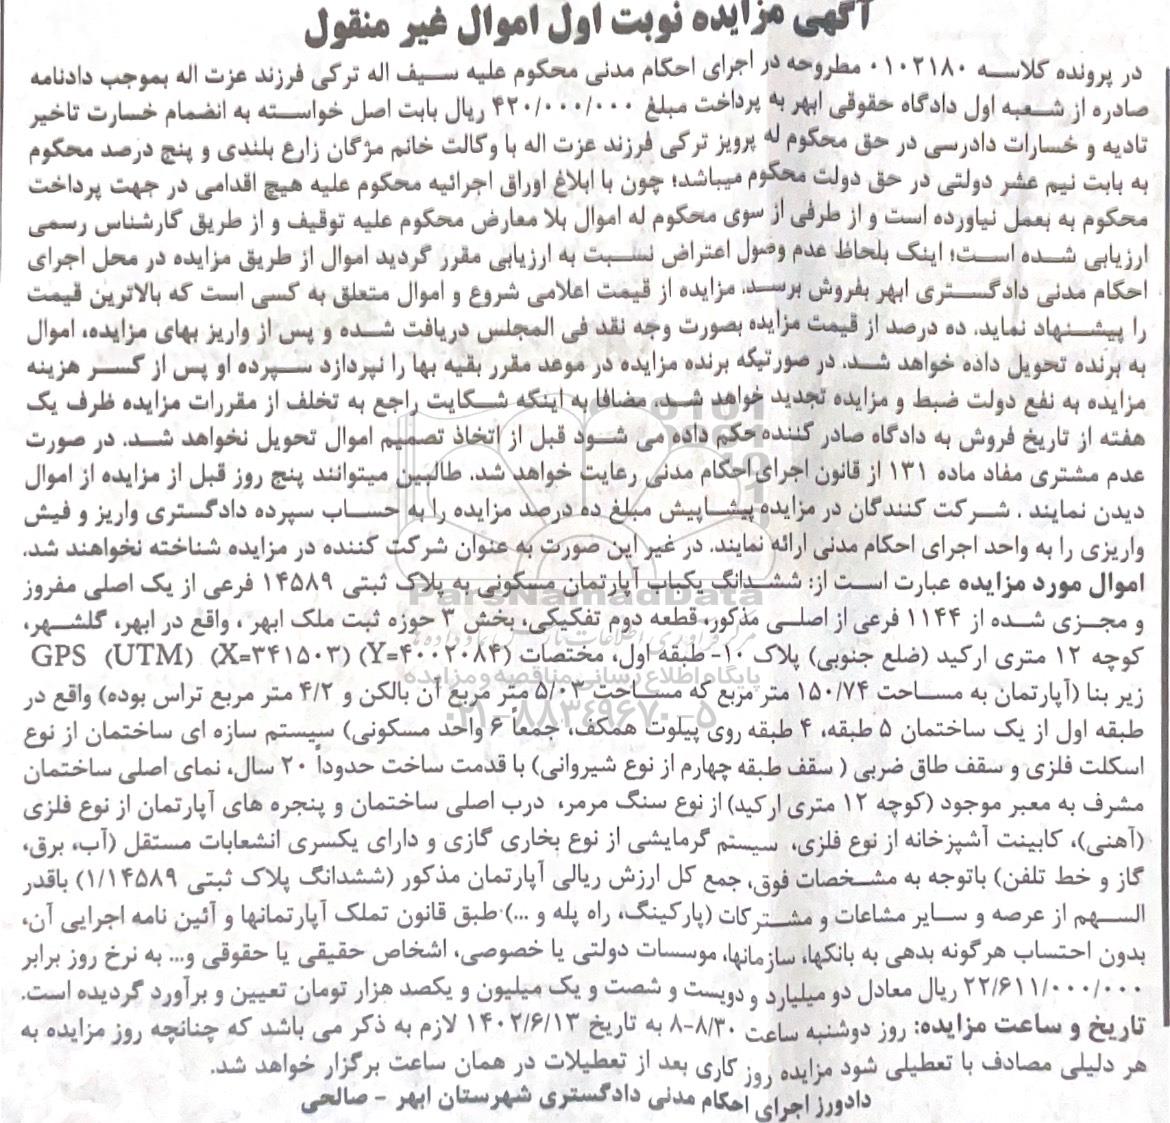 آگهی مزایده نوبت اول اموال غیر منقول
در پرونده کلاسه ۰۱۰۲۱۸۰ مطروحه در اجرای احکام مدنی محکوم علیه سیف اله ترکی فرزند عزت اله بموجب دادنامه
صادره از شعبه اول دادگاه حقوقی ابهر به پرداخت مبلغ ۴۲۰/۰۰۰/۰۰۰ ریال بابت اصل خواسته به انضمام خسارت تاخیر
تادیه و خسارات دادرسی در حق محکوم له پرویز ترکی فرزند عزت اله با وکالت خانم مژگان زارع بلندی و پنج درصد محکوم
به بابت نیم عشر دولتی در حق دولت محکوم میباشد؛ چون با ابلاغ اوراق اجرائیه محکوم علیه هیچ اقدامی در جهت پرداخت
محکوم به بعمل نیاورده است و از طرفی از سوی محکوم له اموال بلا معارض محکوم علیه توقیف و از طریق کارشناس رسمی
ارزیابی شده است؛ اینک بلحاظ عدم وصول اعتراض نسبت به ارزیابی مقرر گردید اموال از طریق مزایده در محل اجرای
احکام مدنی دادگستری ابهر بفروش برسد. مزایده از قیمت اعلامی شروع و اموال متعلق به کسی است که بالاترین قیمت
را پیشنهاد نماید. ده درصد از قیمت مزایده بصورت وجه نقد فی المجلس دریافت شده و پس از واریز بهای مزایده، اموال
به برنده تحویل داده خواهد شد. در صورتیکه برنده مزایده در موعد مقرر بقیه بها را نپردازد سپرده او پس از کسر هزینه
مزایده به نفع دولت ضبط و مزایده تجدید خواهد شد. مضافا به اینکه شکایت راجع به تخلف از مقررات مزایده ظرف یک
هفته از تاریخ فروش به دادگاه صادر کننده حکم داده می شود قبل از اتخاذ تصمیم اموال تحویل نخواهد شد. در صورت
عدم مشتری مفاد ماده ۱۳۱ از قانون اجرای احکام مدنی رعایت خواهد شد. طالبین میتوانند پنج روز قبل از مزایده از اموال
دیدن نمایند . شرکت کنندگان در مزایده پیشاپیش مبلغ ده درصد مزایده را به حساب سپرده دادگستری واریز و فیش
واریزی را به واحد اجرای احکام مدنی ارائه نمایند. در غیر این صورت به عنوان شرکت کننده در مزایده شناخته نخواهند شد.
اموال مورد مزایده عبارت است از: ششدانگ یکباب آپارتمان مسکونی به پلاک ثبتی ۱۴۵۸۹ فرعی از یک اصلی مفروز
و مجزی شده از ۱۱۴۴ فرعی از اصلی مذکور، قطعه دوم تفکیکی، بخش ۳ حوزه ثبت ملک ابهر ، واقع در ابهر، گلشهر،
کوچه ۱۲ متری ارکید (ضلع جنوبی) پلاک ۱۰- طبقه اول، مختصات GPS (UTM) (X=۳۴۱۵۰۳) (Y=۴۰۰۲۰۸۴)
زیر بنا (آپارتمان به مساحت ۱۵۰/۷۴ متر مربع که مساحت ۵/۰۳ متر مربع آن بالکن و ۴/۲ متر مربع تراس بوده) واقع در
طبقه اول از یک ساختمان ۵ طبقه، ۴ طبقه روی پیلوت همکف، جمعاً ۶ واحد مسکونی) سیستم سازه ای ساختمان از نوع
اسکلت فلزی و سقف طاق ضربی ( سقف طبقه چهارم از نوع شیروانی) با قدمت ساخت حدوداً ۲۰ سال، نمای اصلی ساختمان
مشرف به معبر موجود (کوچه ۱۲ متری ارکید) از نوع سنگ مرمر، درب اصلی ساختمان و پنجره های آپارتمان از نوع فلزی
(آهنی)، کابینت آشپزخانه از نوع فلزی، سیستم گرمایشی از نوع بخاری گازی و دارای یکسری انشعابات مستقل (آب، برق،
گاز و خط تلفن) باتوجه به مشخصات فوق، جمع کل ارزش ریالی آپارتمان مذکور (ششدانگ پلاک ثبتی ۱/۱۴۵۸۹) باقدر
السهم از عرصه و سایر مشاعات و مشترکات (پارکینگ، راه پله و ...) طبق قانون تملک آپارتمانها و آئین نامه اجرایی آن،
بدون احتساب هرگونه بدهی به بانکها، سازمانها، موسسات دولتی یا خصوصی، اشخاص حقیقی یا حقوقی و... به نرخ روز برابر
۲۲/۶۱۱/۰۰۰/۰۰۰ ریال معادل دو میلیارد و دویست و شصت و یک میلیون و یکصد هزار تومان تعیین و برآورد گردیده است.
تاریخ و ساعت مزایده: روز دوشنبه ساعت ۸/۳۰-۸ به تاریخ ۱۴۰۲/۶/۱۳ لازم به ذکر می باشد که چنانچه روز مزایده به
هر دلیلی مصادف با تعطیلی شود مزایده روز کاری بعد از تعطیلات در همان ساعت برگزار خواهد شد.
دادورز اجرای احکام مدنی دادگستری شهرستان ابهر - صالحی
ParsNamadData
پایگاه اطلاع رسانی مناقصه و مزایده
۰۲۱-۸۸۳۴۹۶۷۰-۵